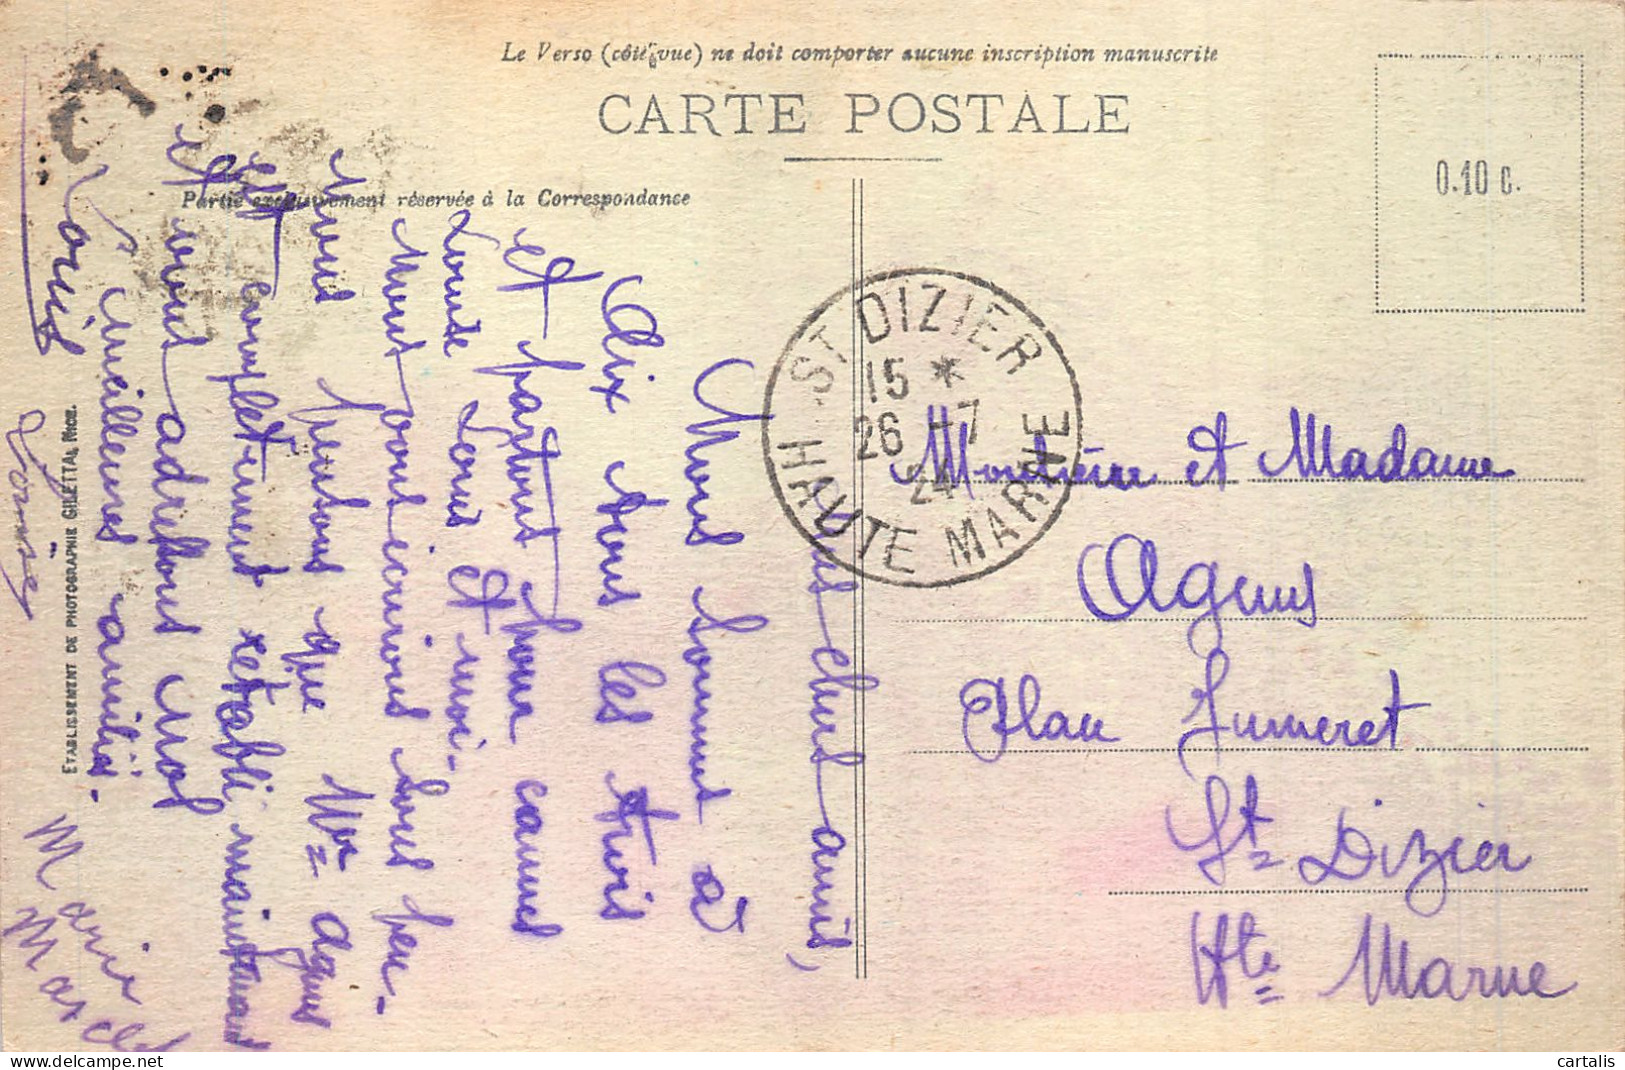 Le Verso (côté vue) ne doit comporter aucune inscription manuscrite
CARTE POSTALE
Partie exclusivement réservée à la Correspondance
0.10 c.
ST DIZIER
15 *
26 - 7
24
HAUTE MARNE
Monsieur et Madame
Agnus
Place Jumeret
St Dizier
Hte Marne
Mes chers amis,
Nous sommes à
Aix tous les trois
et partout pour cannes
Louis et moi.
Nous vous écrivons sous peu.
Nous pensons que Mr Agnus
est complètement rétabli maintenant
et vous adressons nos
meilleures amitiés.
Louis
Marie
Marcel
ETABLISSEMENT DE PHOTOGRAPHIE GILETTA, NICE.
cartalis